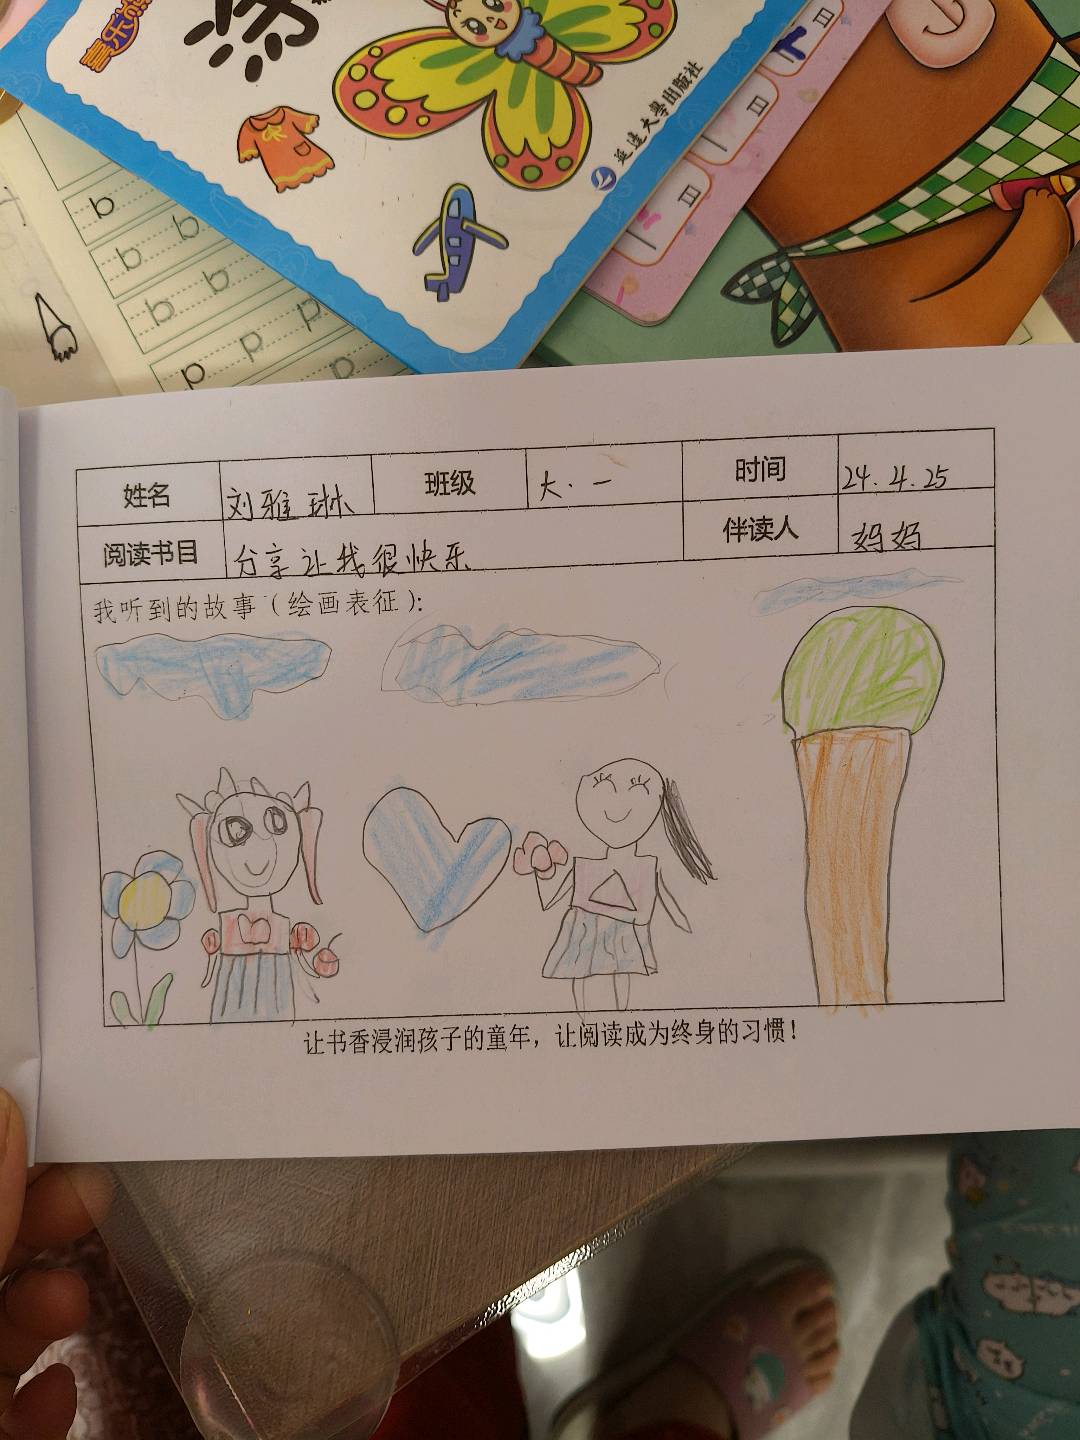 喜乐熊
涂
延边大学出版社
b
b b
b b
p p p
姓名 刘雅琳 班级 大.一 时间 24.4.25
阅读书目 分享让我很快乐 伴读人 妈妈
我听到的故事（绘画表征）：
让书香浸润孩子的童年，让阅读成为终身的习惯！